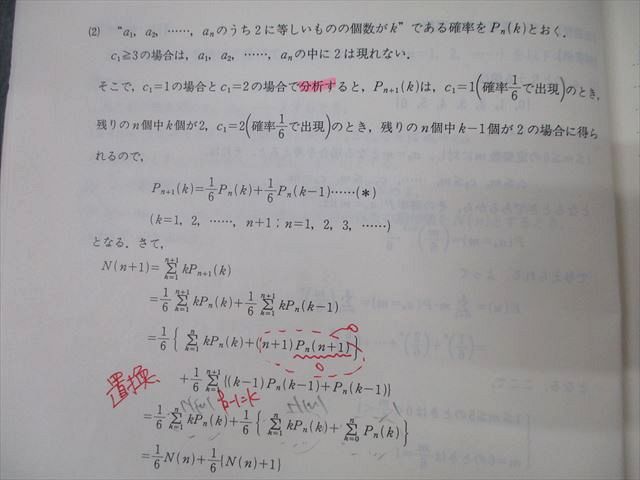 (2) “a₁, a₂, ……, aₙのうち2に等しいものの個数がk”である確率をPₙ(k)とおく.
c₁≧3の場合は, a₁, a₂, ……, aₙの中に2は現れない.
そこで, c₁=1の場合とc₁=2の場合で分析すると, Pₙ₊₁(k)は, c₁=1(確率1/6で出現)のとき,
残りのn個中k個が2, c₁=2(確率1/6で出現)のとき, 残りのn個中k−1個が2の場合に得ら
れるので,
Pₙ₊₁(k)=1/6Pₙ(k)+1/6Pₙ(k−1)……(*)
(k=1, 2, ……, n+1 ; n=1, 2, 3, ……)
となる. さて,
N(n+1)=Σ[k=1, n+1] kPₙ₊₁(k)
=1/6 Σ[k=1, n+1] kPₙ(k)+1/6 Σ[k=1, n+1] kPₙ(k−1)
=1/6{Σ[k=1, n] kPₙ(k)+(n+1)Pₙ(n+1)}
0
0
+1/6 Σ[k=1, n+1] {(k−1)Pₙ(k−1)+Pₙ(k−1)}
置換
k−1=k
N(n)
N(n)
1
=1/6 Σ[k=1, n] kPₙ(k)+1/6{Σ[k=1, n] kPₙ(k)+Σ[k=0, n] Pₙ(k)}
=1/6N(n)+1/6{N(n)+1}